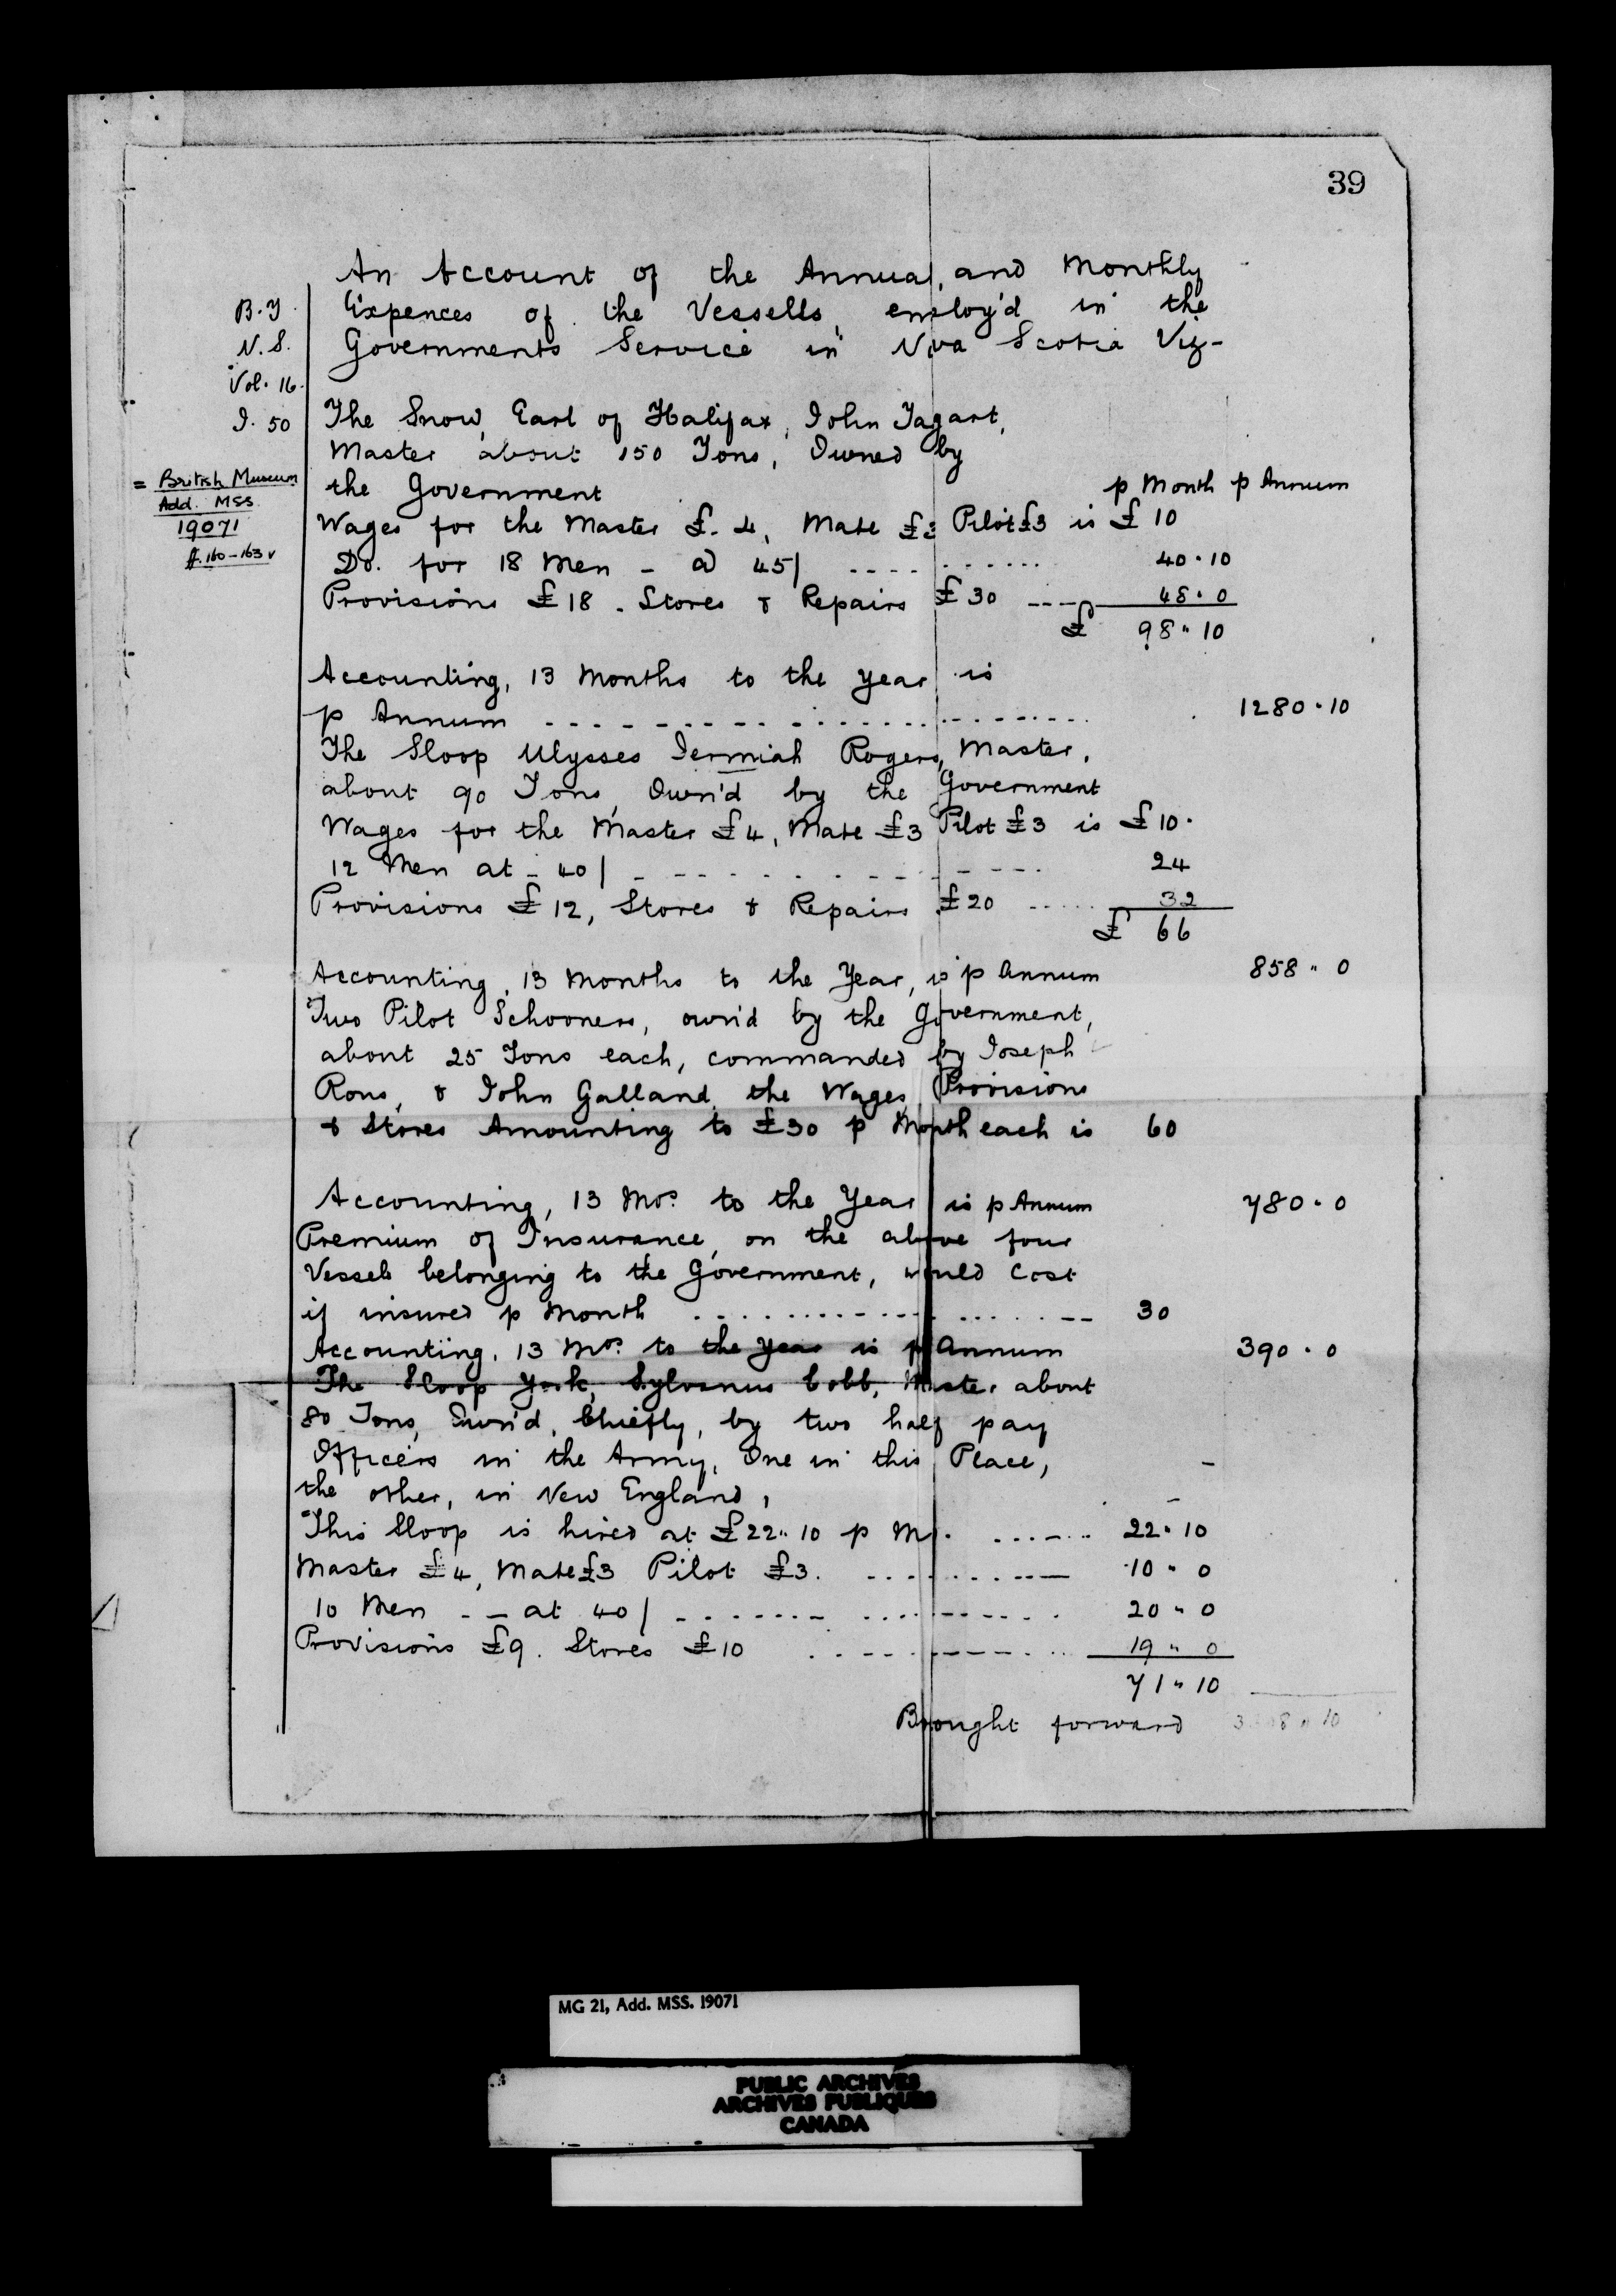 39
An Account of the Annual, and Monthly
Expences of the Vessells, employ'd in the
Governments Service in Nova Scotia Viz-
B.T.
N.S.
Vol. 16.
I. 50
= British Museum
Add. MSS
19071
ff. 160-163v
The Snow, Earl of Halifax, John Tagart,
Master about 150 Tons, Owned by
the Government
p Month p Annum
Wages for the Master £. 4, Mate £3 Pilot £3 is £ 10
Do. for 18 Men - @ 45/ .... 40.10
Provisions £18. Stores & Repairs £30 .... 48.0
£ 98"10
Accounting, 13 Months to the year is
p Annum .... 1280.10
The Sloop Ulysses Jermiah Rogers, Master,
about 90 Tons, Own'd by the Government
Wages for the Master £4, Mate £3 Pilot £3 is £10.
12 Men at - 40/ .... 24
Provisions £12, Stores & Repairs £20 .... 32
£ 66
Accounting, 13 Months to the Year, is p Annum 858" 0
Two Pilot Schooners, own'd by the Government,
about 25 Tons each, commanded by Joseph
Rous, & John Galland, the Wages, Provisions
& Stores Amounting to £30 p Month each is 60
Accounting, 13 Mos. to the Year is p Annum 780.0
Premium of Insurance, on the above four
Vessels belonging to the Government, would Cost
if insured p Month .... 30
Accounting, 13 Mos. to the Year is p Annum 390.0
The Sloop York, Sylvanus Cobb, Master about
80 Tons, Own'd, Chiefly, by two half pay
Officers in the Army, One in this Place,
the other, in New England,
This Sloop is hired at £22"10 p Mo. .... 22"10
Master £4, Mate £3 Pilot £3. .... 10" 0
10 Men - - at 40/ .... 20" 0
Provisions £9. Stores £10 .... 19" 0
71"10
Brought forward
MG 21, Add. MSS. 19071
PUBLIC ARCHIVES
ARCHIVES PUBLIQUES
CANADA